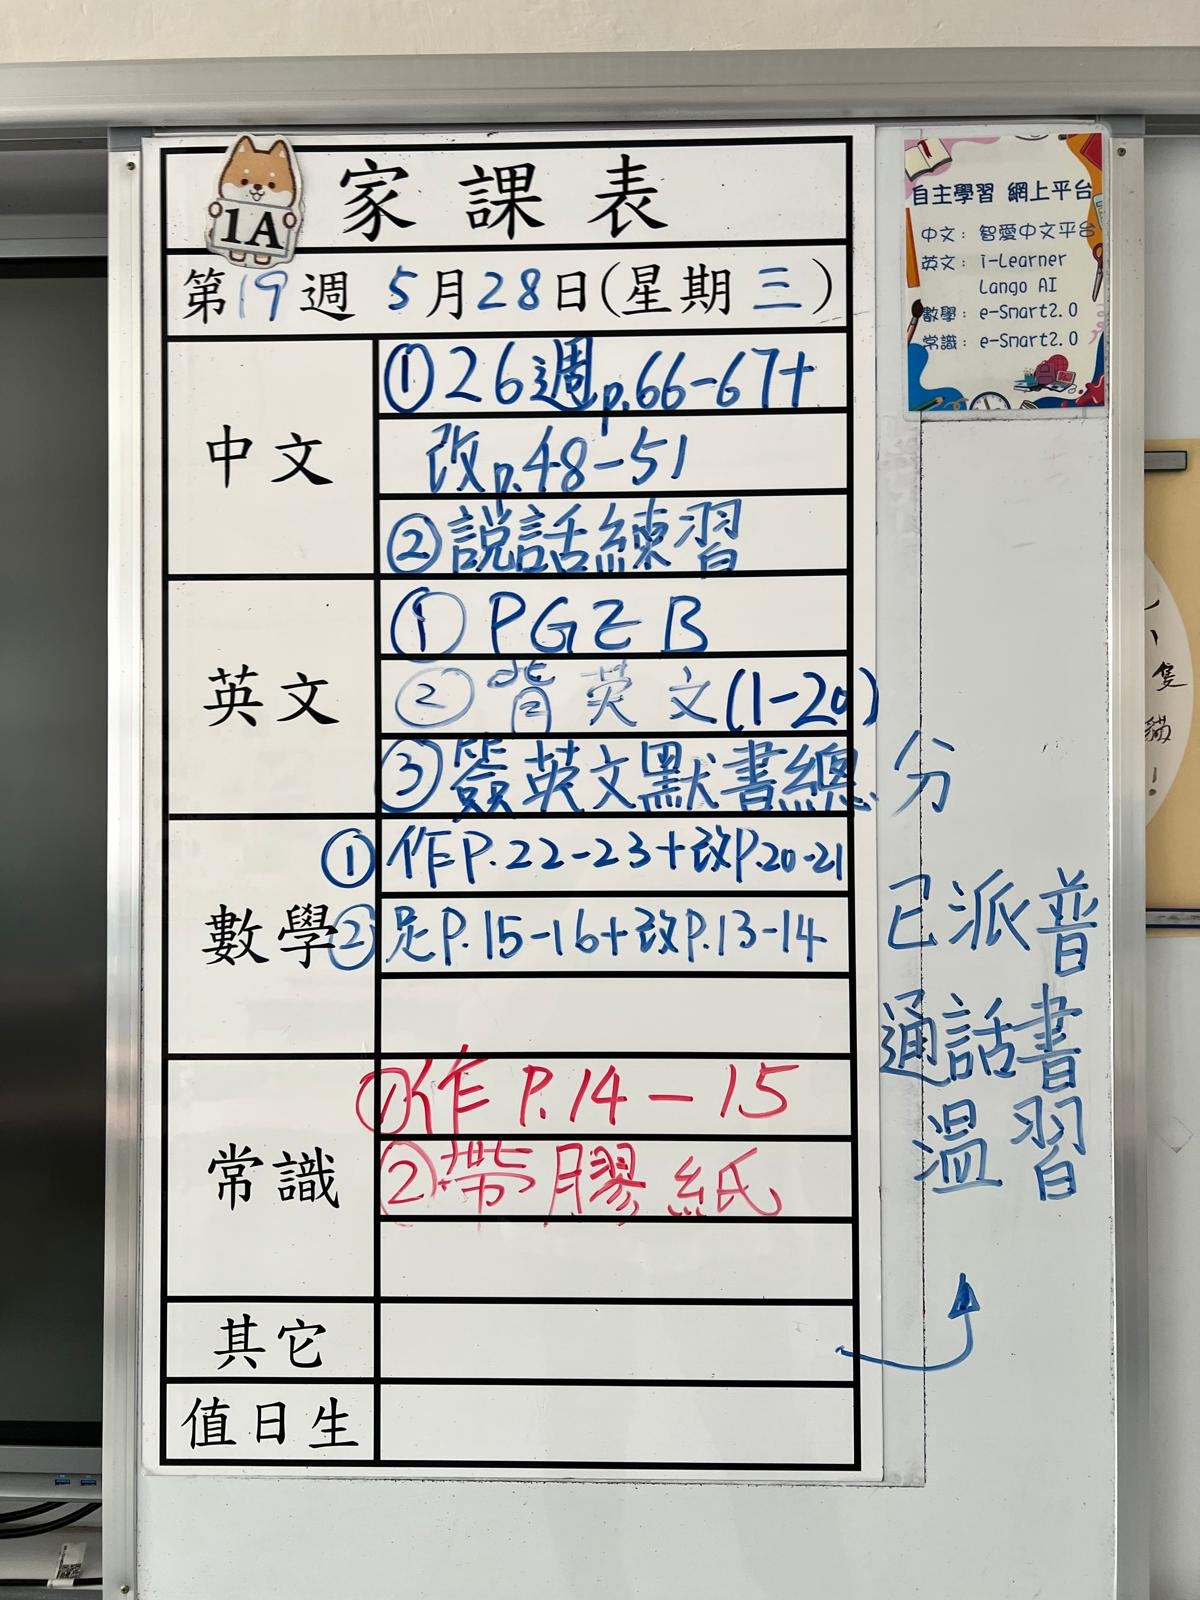 1A
家課表
第19週 5月28日(星期三)
中文
①26週p.66-67+
改p.48-51
②說話練習
英文
①PGEB
②背英文(1-20)
③簽英文默書總分
數學
①作P.22-23+改P.20-21
②足P.15-16+改P.13-14
常識
①作P.14-15
②帶膠紙
其它
已派普
通話書
溫習
值日生
自主學習 網上平台
中文：智愛中文平台
英文：i-Learner
Lango AI
數學：e-Smart2.0
常識：e-Smart2.0
隻
貓
！